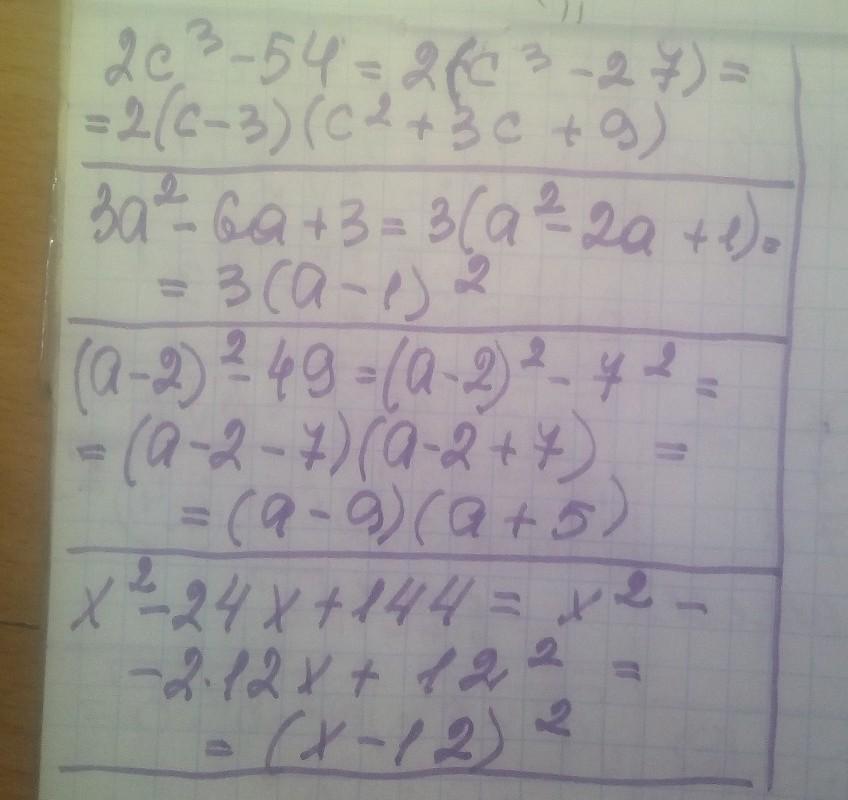 2c³ - 54 = 2(c³ - 27) =
= 2(c - 3)(c² + 3c + 9)
3a² - 6a + 3 = 3(a² - 2a + 1) =
= 3(a - 1)²
(a - 2)² - 49 = (a - 2)² - 7² =
= (a - 2 - 7)(a - 2 + 7) =
= (a - 9)(a + 5)
x² - 24x + 144 = x² -
- 2·12x + 12² =
= (x - 12)²